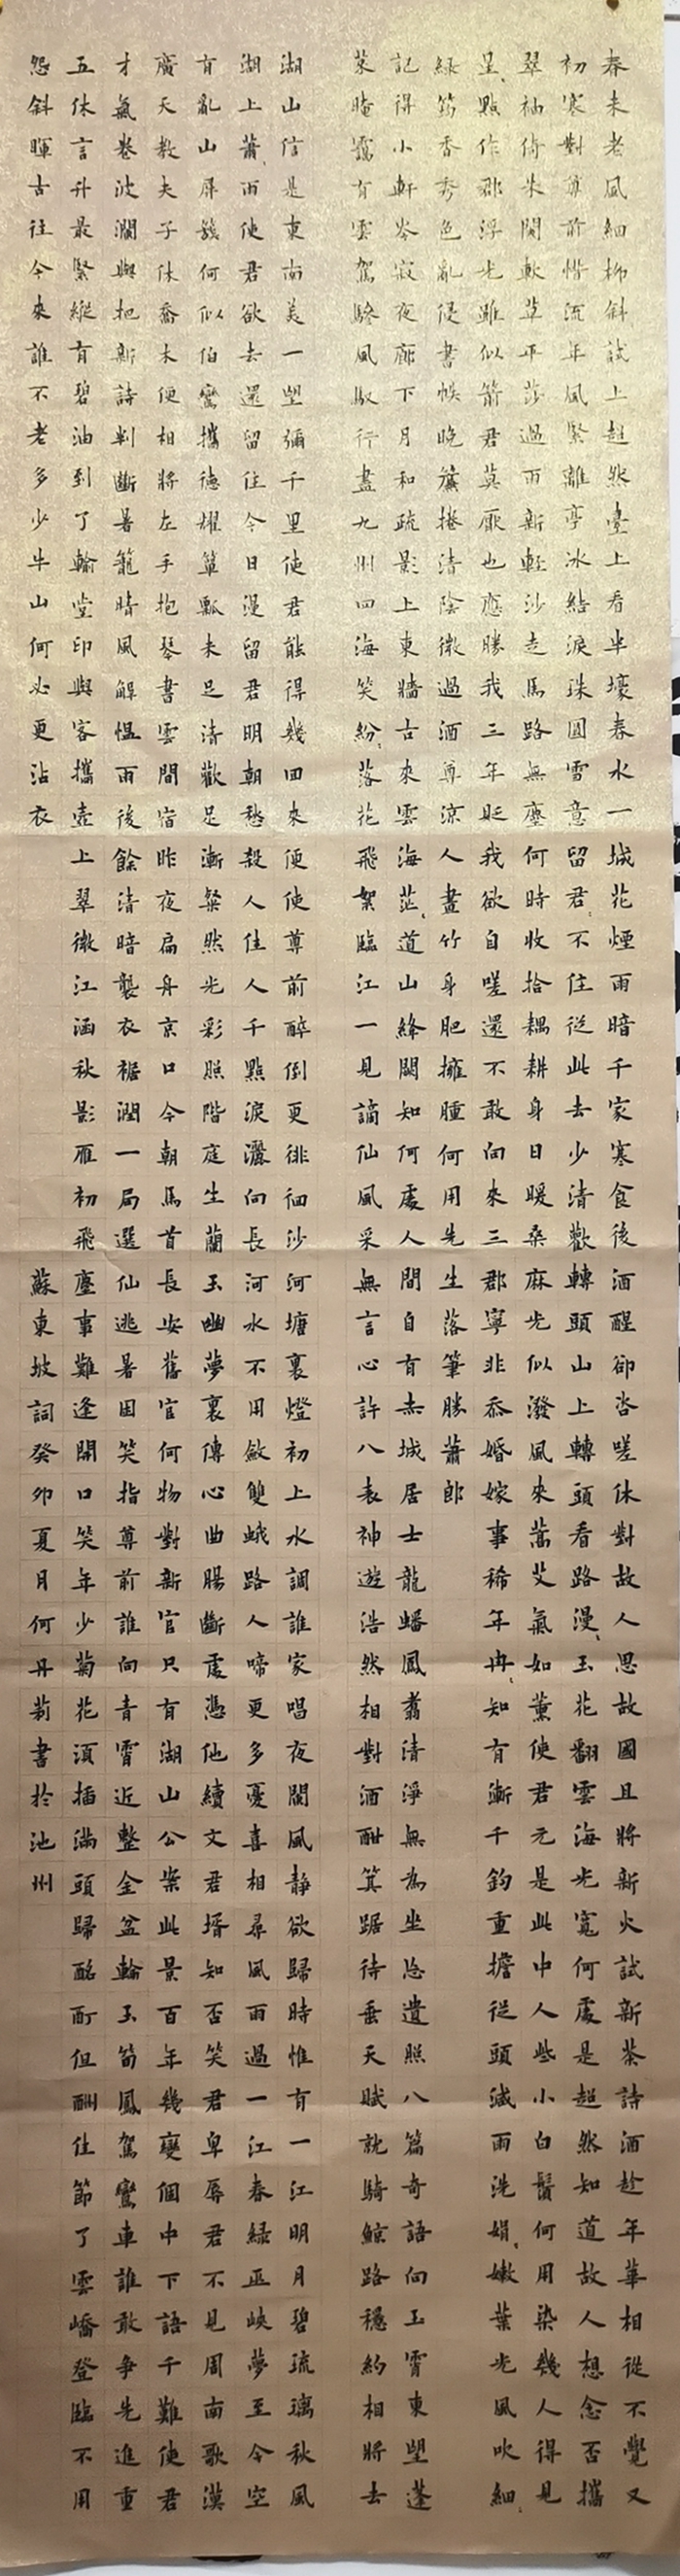 春未老風細柳斜斜試上超然臺上看半壕春水一城花煙雨暗千家寒食後酒醒卻咨嗟休對故人思故國且將新火試新茶詩酒趁年華相從不覺又
初寒對尊前惜流年風緊離亭冰結淚珠圓雪意留君君不住從此去少清歡轉頭山上轉頭看路漫漫玉花翻雲海光寬何處是超然知道故人想念否攜
翠袖倚朱闌軟草平莎過雨新輕沙走馬路無塵何時收拾耦耕身日暖桑麻光似潑風來蒿艾氣如薰使君元是此中人些小白鬚何用染幾人得見
星星點作郡浮光雖似箭君莫厭也應勝我三年貶我欲自嗟還不敢向來三郡寧非忝婚嫁事稀年冉冉知有漸千鈞重擔從頭減雨洗娟娟嫩葉光風吹細細
綠筠香秀色亂侵書帙晚簾捲清陰微過酒尊涼人畫竹身肥擁腫何用先生落筆勝蕭郎
記得小軒岑寂夜廊下月和疏影上東牆古來雲海茫茫道山絳闕知何處人間自有赤城居士龍蟠鳳翥清淨無為坐忘遺照八篇奇語向玉霄東望蓬
萊晻靄有雲駕驂風馭行盡九州四海笑紛紛落花飛絮臨江一見謫仙風采無言心許八表神遊浩然相對酒酣箕踞待垂天賦就騎鯨路穩約相將去
湖山信是東南美一望彌千里使君能得幾回來便使尊前醉倒更徘徊沙河塘裏燈初上水調誰家唱夜闌風靜欲歸時惟有一江明月碧琉璃秋風
湖上蕭蕭雨使君欲去還留住今日漫留君明朝愁殺人佳人千點淚灑向長河水不用斂雙蛾路人啼更多憂喜相尋風雨過一江春綠巫峽夢至今空
有亂山屏簇何似伯鸞攜德耀簞瓢未足清歡足漸粲然光彩照階庭生蘭玉幽夢裏傳心曲腸斷處憑他續文君壻知否笑君卑辱君不見周南歌漢
廣天教夫子休喬木便相將左手抱琴書雲間宿昨夜扁舟京口今朝馬首長安舊官何物對新官只有湖山公案此景百年幾變個中下語千難使君
才氣卷波瀾與把新詩判斷暑籠晴風解慍雨後餘清暗襲衣裾潤一局選仙逃暑困笑指尊前誰向青霄近整金盆輪玉筍鳳駕鸞車誰敢爭先進重
五休言升最緊縱有碧油到了輸堂印與客攜壺上翠微江涵秋影雁初飛塵事難逢開口笑年少菊花須插滿頭歸酩酊但酬佳節了雲嶠登臨不用
怨斜暉古往今來誰不老多少牛山何必更沾衣
蘇東坡詞癸卯夏月何丹莉書於池州